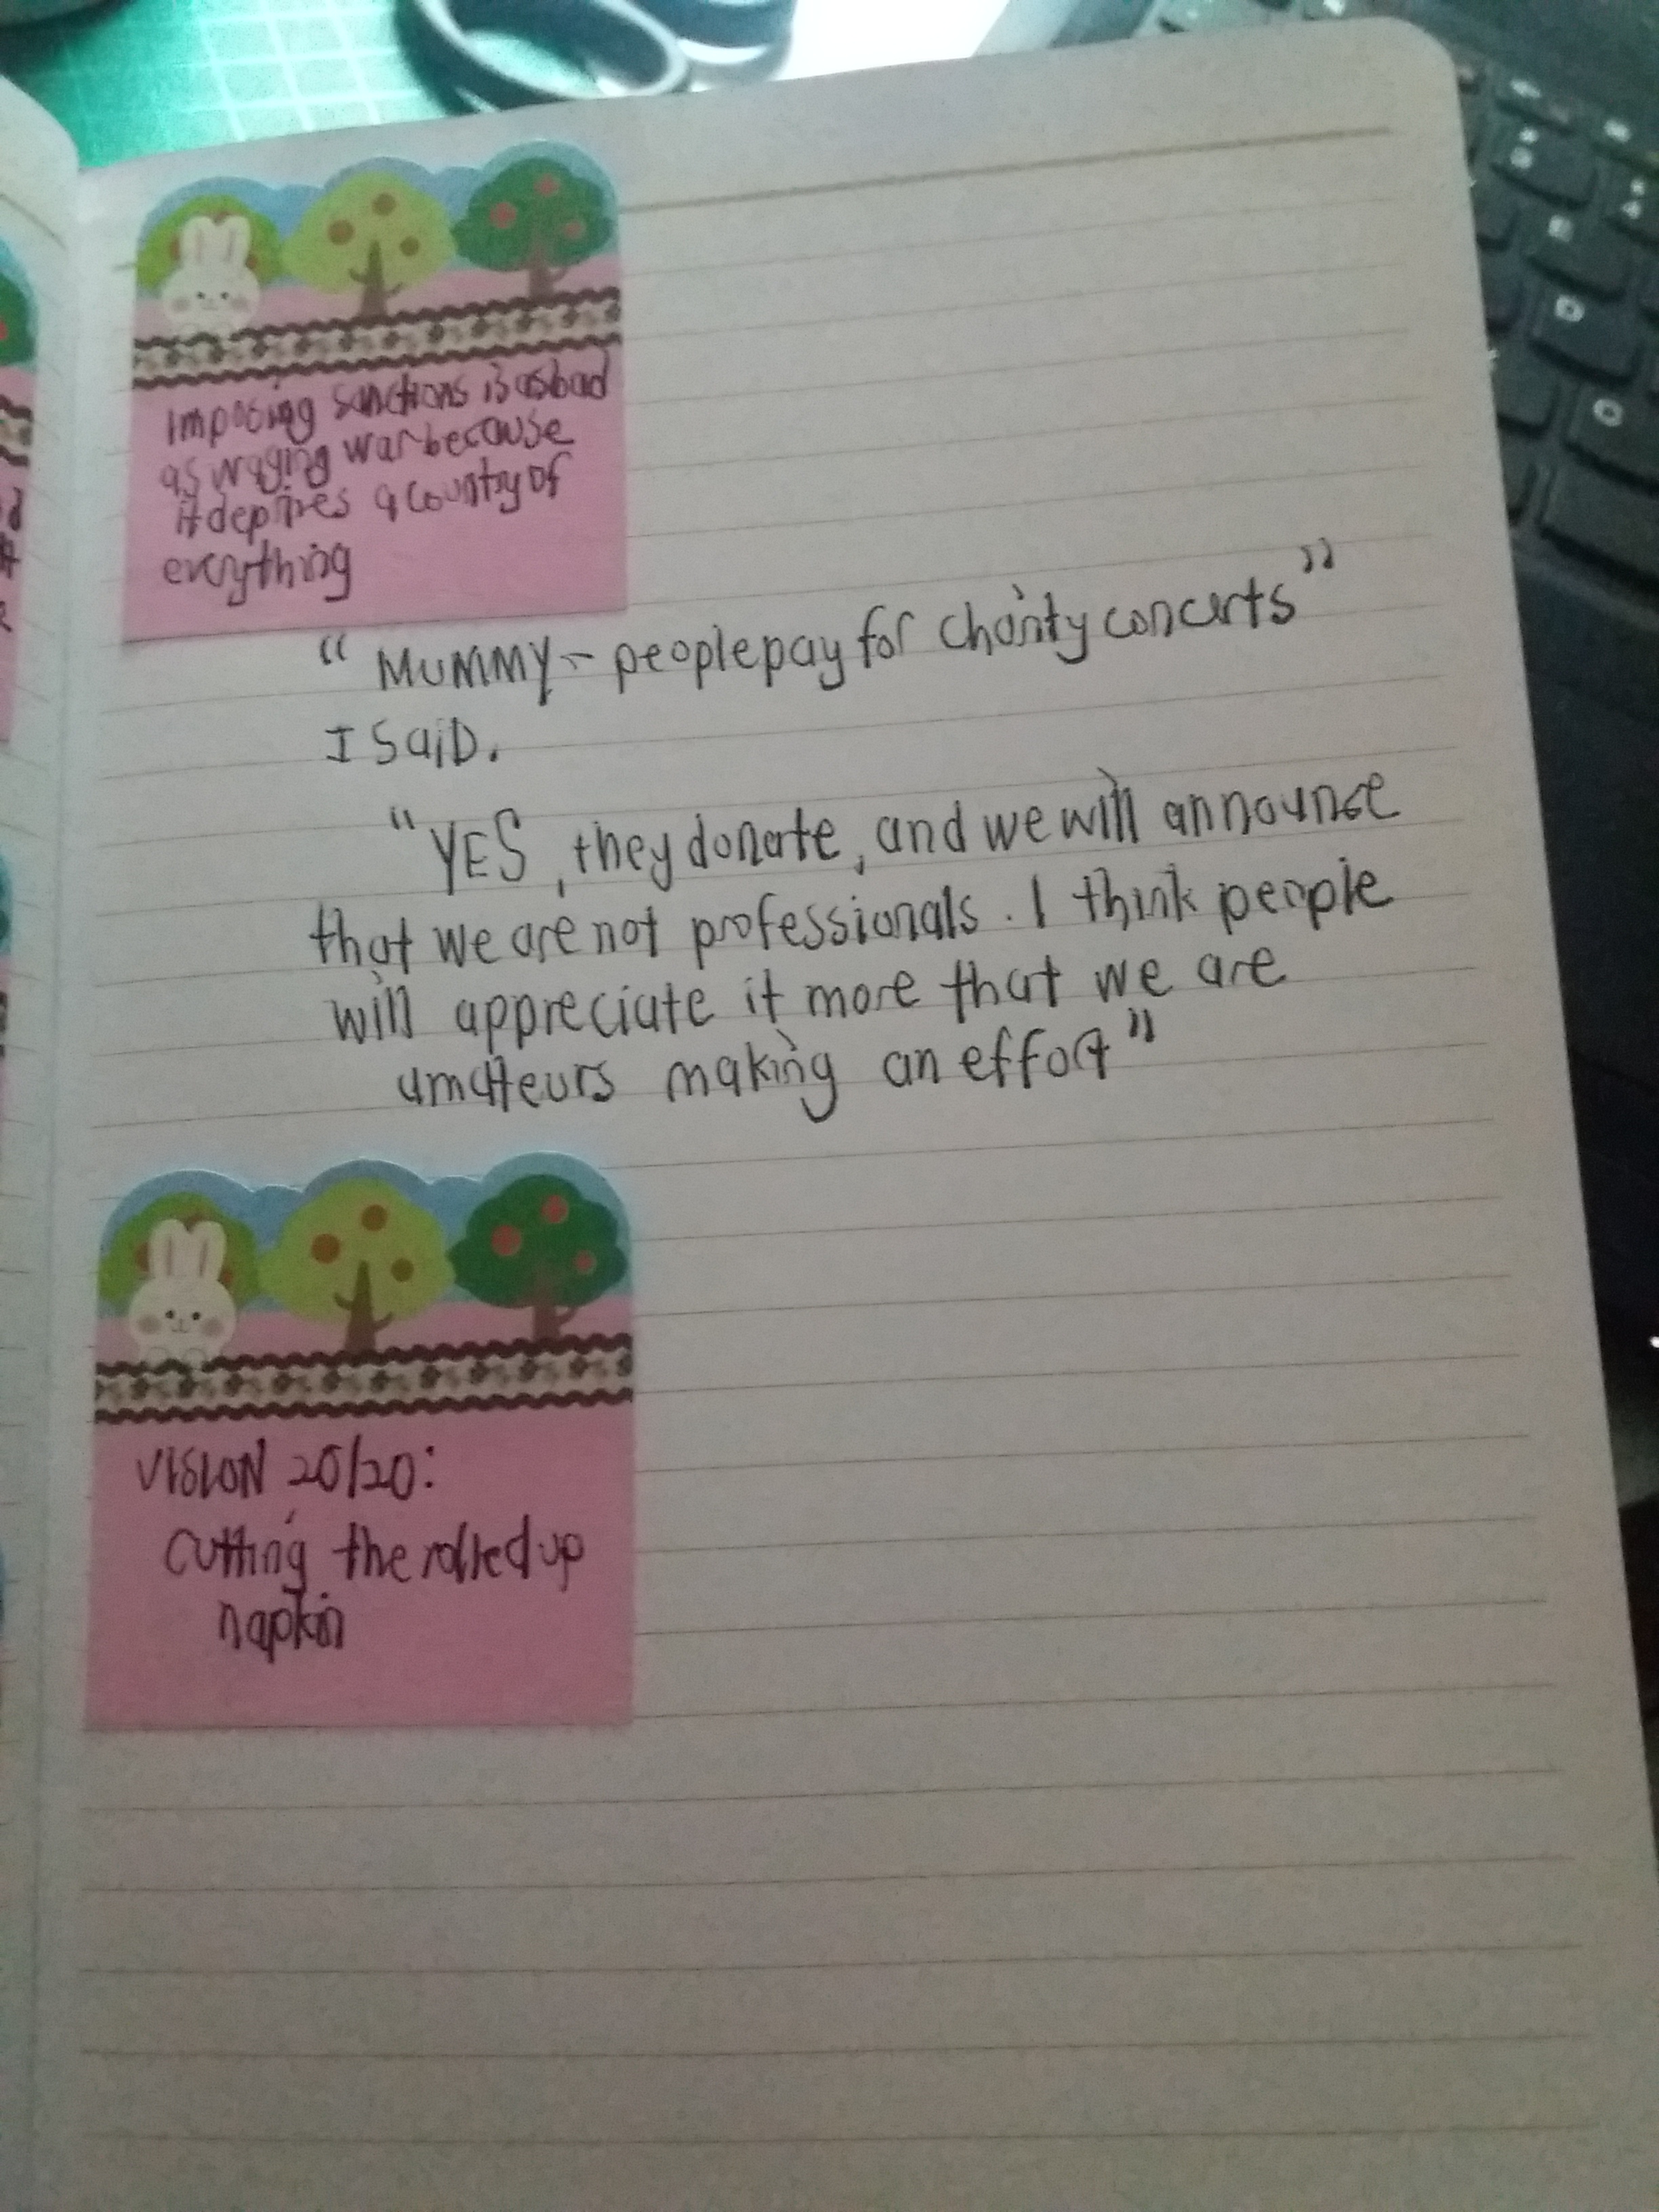 Imposing sanctions is as bad
as waging war because
it deprives a country of
everything
“MUMMY – people pay for charity concerts”
I SaiD.
“YES, they donate, and we will announce
that we are not professionals. I think people
will appreciate it more that we are
amateurs making an effort”
VISION 20/20:
Cutting the rolled up
napkin